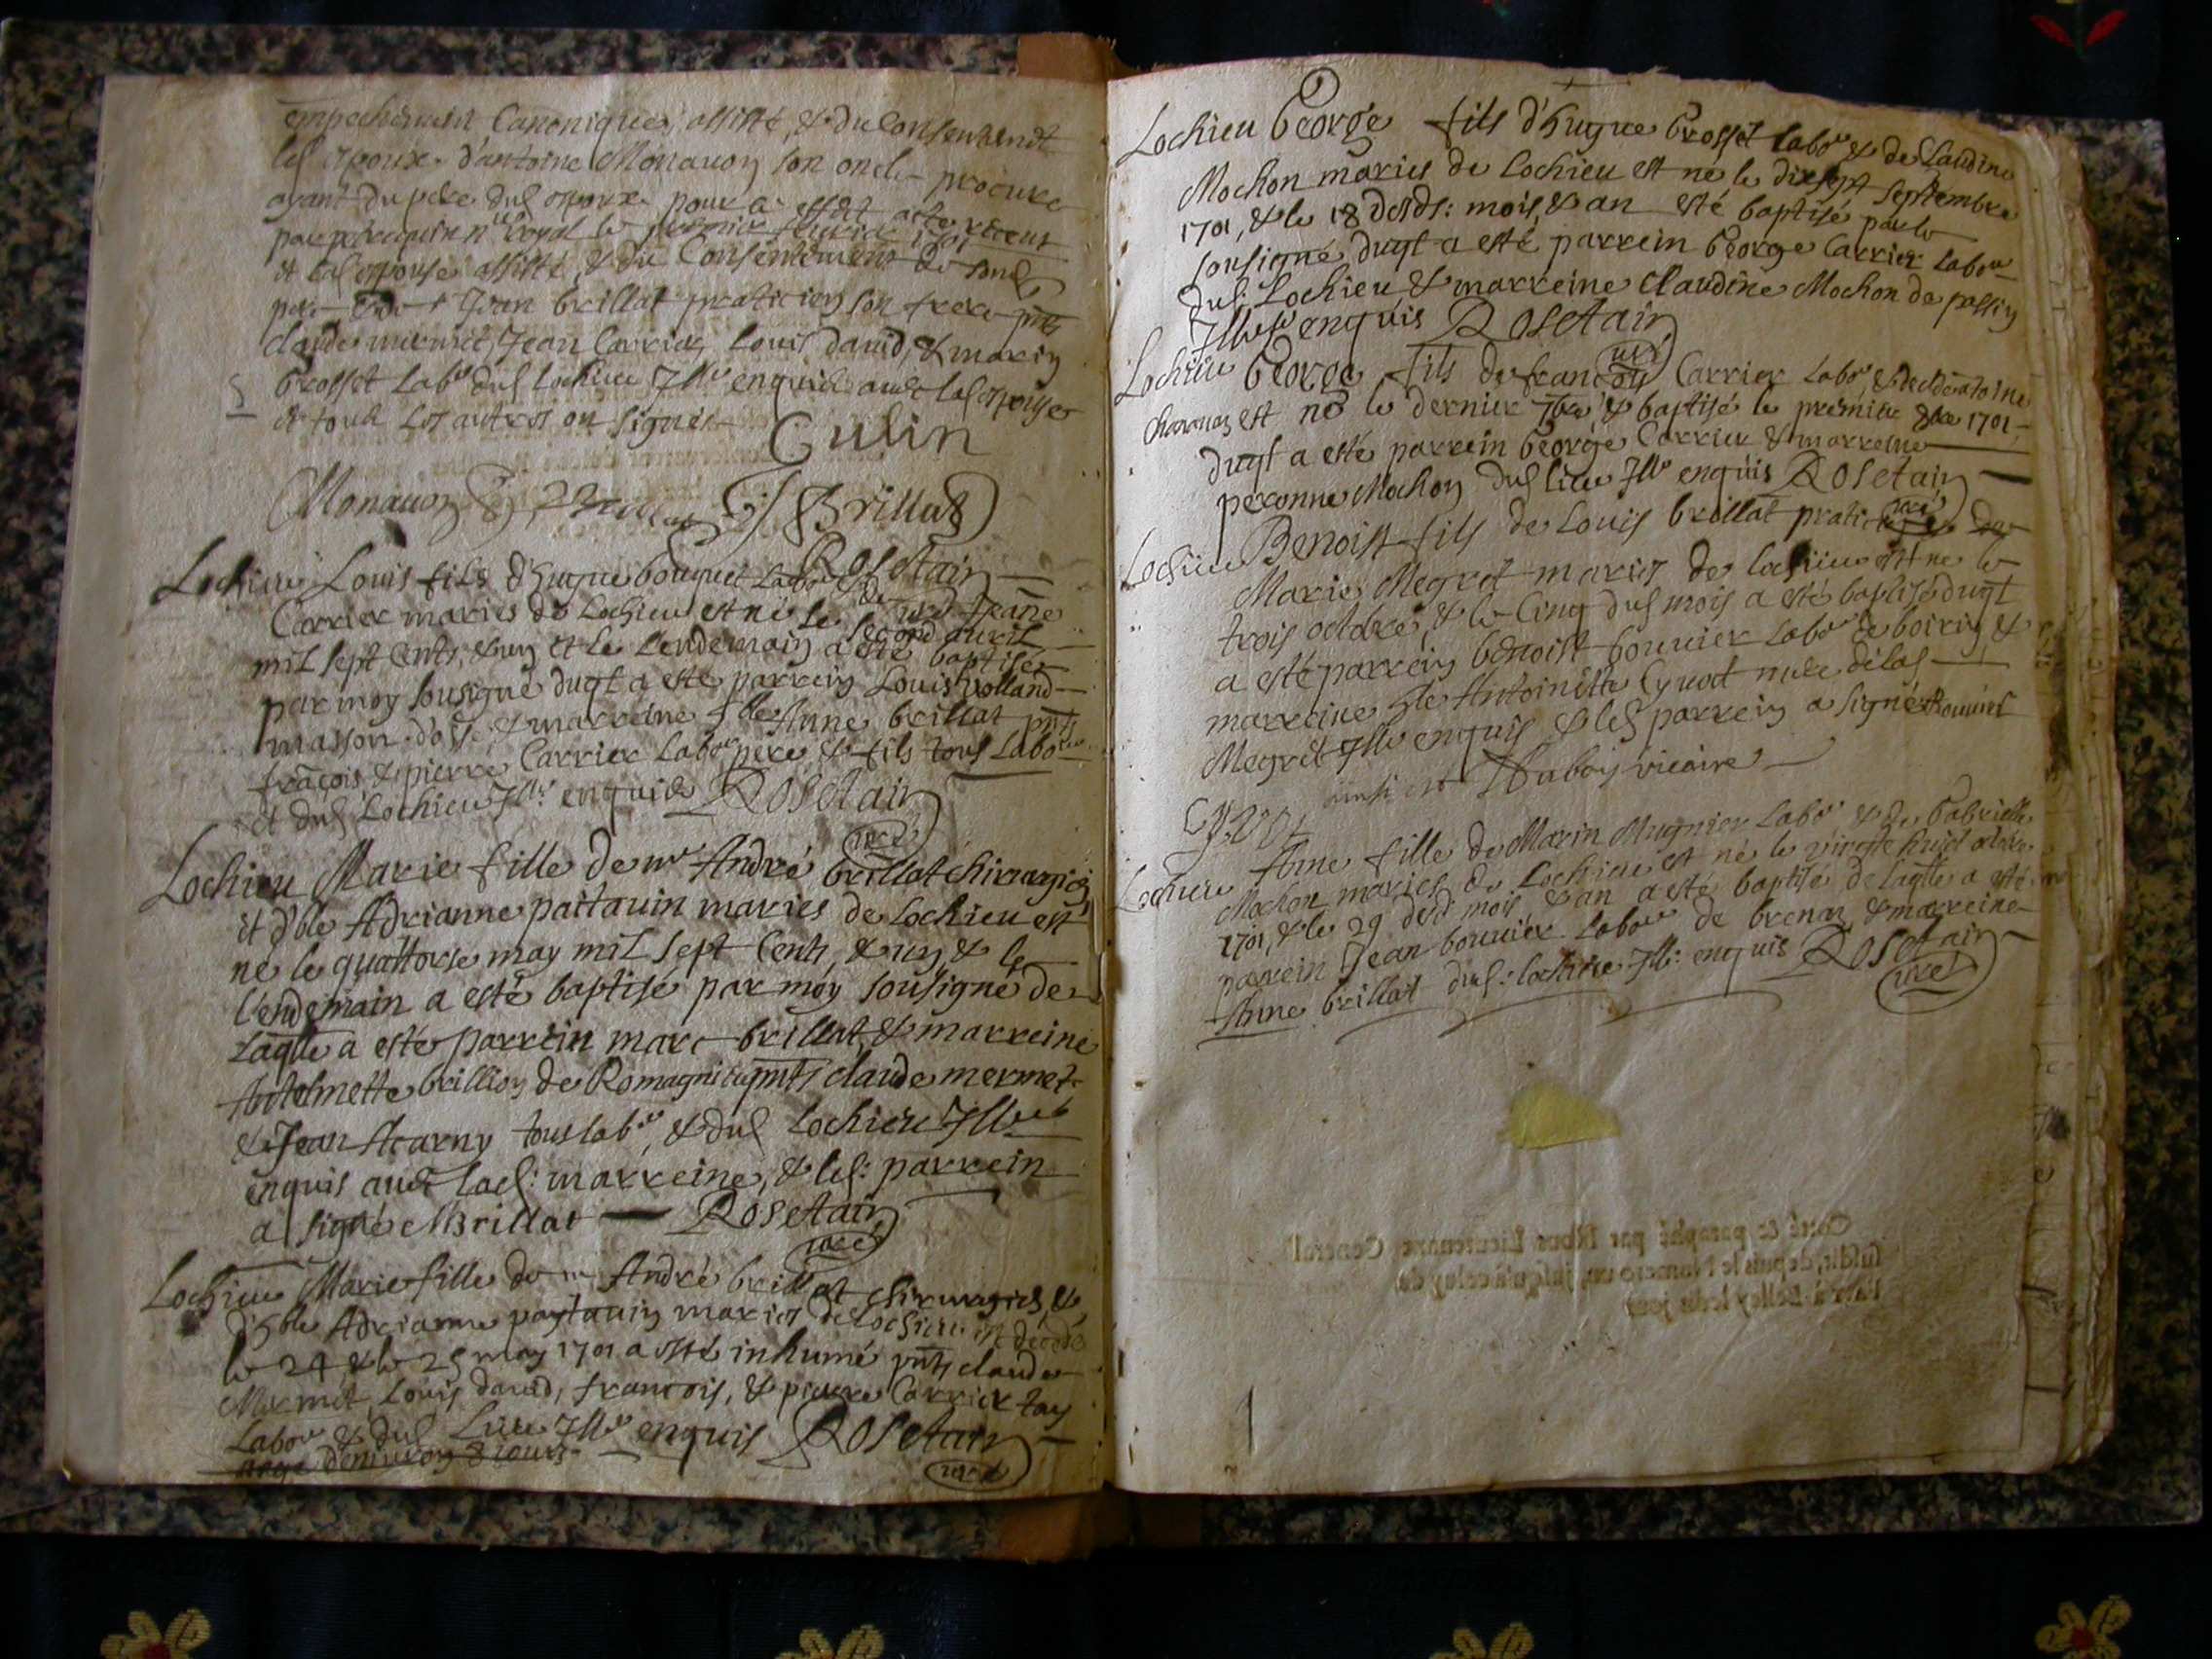 empechement Canonique, assisté, & du Consentement
les espoux d'antoine Monauon son oncle procure
ayant du pere dud espoux pour a effet acte receu
par royal le premier feurier 1701
et lad espouse assisté, & du Consentement de sond
pere Jean brillat praticien son frere pnts
claude mermet, Jean Carrier, Louis dauid, & marin
Grosset Labrs dud Lochieu Illrés enquis auec lad espouse
et tous les autres on signés
Culin
Monauon Brillat
Rosetain
Lochieu Louis fils d'hugue bouquet Labour & de Jeanne
Carrier maries de Lochieu est né le second auril
mil sept Cents, & un et le Lendemain a esté baptisé
par moy sousigné duql a esté parrein Louis Volland
masson & marreine Anne brillat pnts
françois, & pierre Carrier Labour pere & fils tous Labors
et dud Lochieu Illr enquis Rosetain
curé
Lochieu Marie fille de mre André brillat chirurgien
et d'ble Adrianne paitauin maries de Lochieu est
né le quattorse may mil sept Cents, & un, & le
lendemain a esté baptisé par moy sousigné de
Laqlle a esté parrein marc brillat, & marreine
Antelmette brillion de Romagnieu pnts claude mermet
& Jean Acarny tous labrs, & dud Lochieu Illrés
enquis auec lad: marreine, & led: parrein
a signé MBrillat Rosetain
curé
Lochieu Marie fille de m André brillat chirurgien, &
d'hble Adrianne paytauin maries de Lochieu est decedé
le 24 & le 25 may 1701 a esté inhumé pnts claude
Mermet, Louis dauid, francois, & pierre Carrier tous
Labors & dud Lieu Illrs enquis Rosetain
aage d'enuiron 8 iours curé
Lochieu George fils d'hugue Grosset Labor & de Claudine
Mochon maries de Lochieu est né le dixsept septembre
1701, & le 18 desds: mois, & an esté baptisé par le
sousigné duqt a esté parrein George Carrier Labour
dud: Lochieu & marreine claudine Mochon de passin
Illrés enquis Rosetain
curé
Lochieu George fils de francois Carrier Labor, &
est né le dernier 7bre & baptisé le premier 8bre 1701
duqt a esté parrein George Carrier & marreine
peronne Mochon dud lieu Illr enquis Rosetain
curé
Lochieu Benoist fils de Louis brillat praticien & de
Marie Megret maries de lochieu est né le
trois octobre, & le Cinq dud mois a esté baptisé duqt
a esté parrein benoist bouuier Labor de boirin &
marreine Antoinette Cyuoct mere de lad
Megret Illre enquis & led parrein a signé Bouuier
ainsi est Dubois vicaire
Lochieu Anne fille de Marin Mugnier Labor & de Gabrielle
Mochon maries de Lochieu est né le vingt huict octobre
1701, & le 29 desd: mois & an a esté baptisé de laqlle a esté
parrein Jean bouuier Labour de brenaz & marreine
Anne brillat dud: lochieu Illr: enquis Rosetain
curé
Cotté & paraphé par Nous Lieutenant General
susdit, depuis le Numero un, jusqu'à celuy de
Fait à Belley le du jour